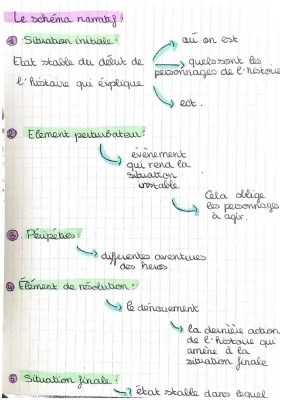 Le schéma narratif :
① Situation initiale :
Etat stable du début de
l'histoire qui explique
où on est
quels sont les
personnages de l'histoire
ect.
② Élement perturbateur :
évènement
qui rend la
situation
instable
Cela oblige
les personnages
à agir.
③ Péripéties :
différentes aventures
des héros.
④ Élément de résolution :
le dénouement
la dernière action
de l'histoire qui
amène à la
situation finale
⑤ Situation finale :
état stable dans lequel